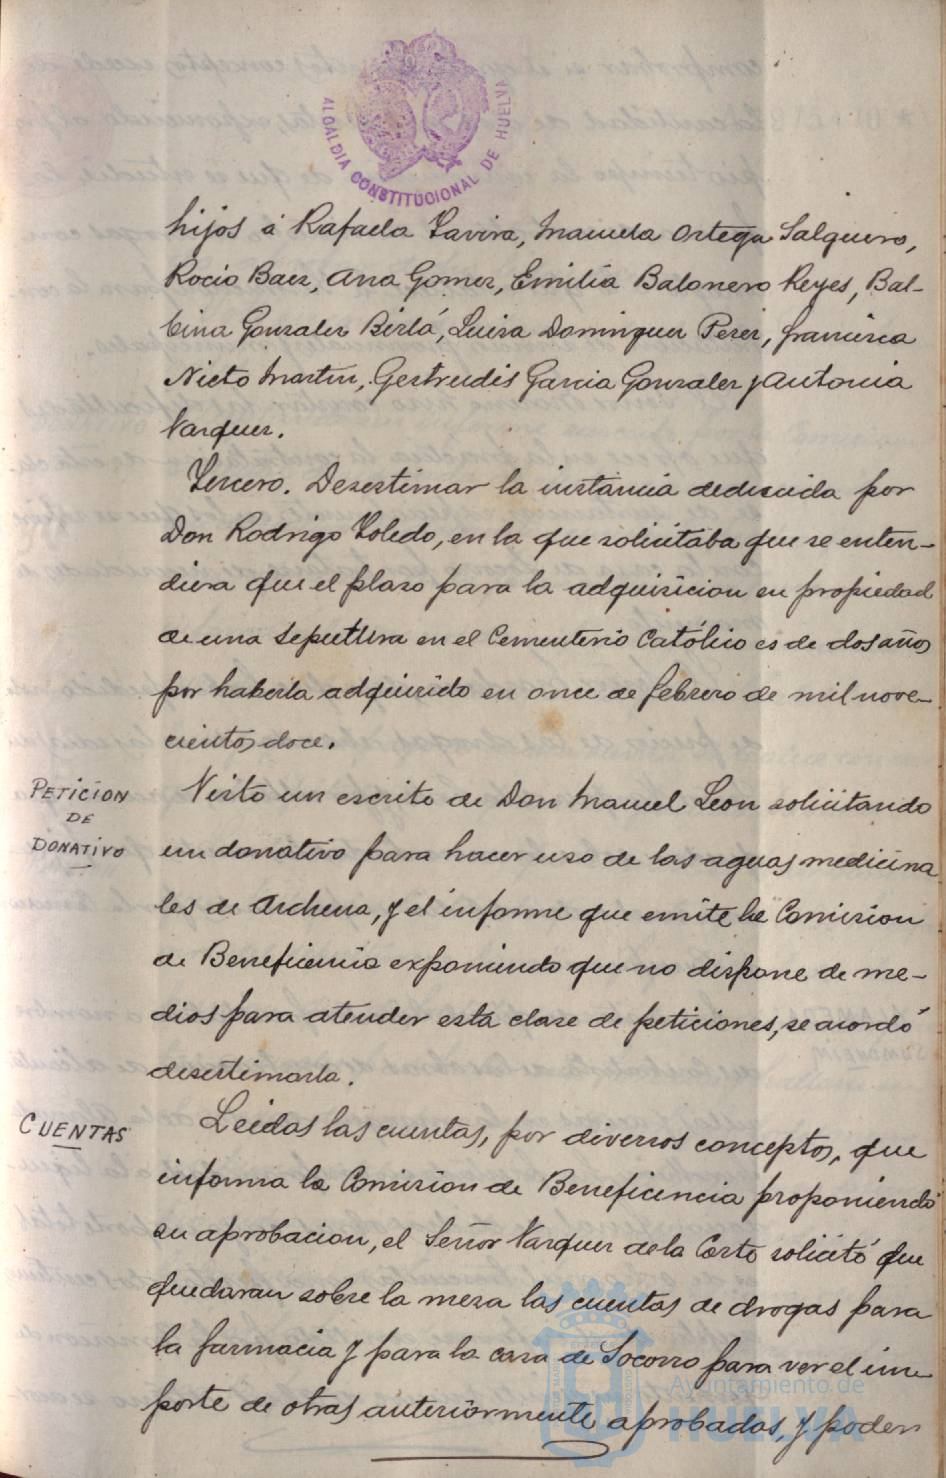 ALCALDIA CONSTITUCIONAL DE HUELVA
hijos á Rafaela Tavira, Manuela Ortega Salguero,
Rocio Baez, Ana Gomez, Emilia Balonero Reyes, Bal-
bina Gonzalez Birlá, Luisa Dominguez Perez, francisca
Nieto Martin, Gertrudis Garcia Gonzalez y Antonia
Vazquez.
Tercero. Desestimar la instancia deducida por
Don Rodrigo Toledo, en la que solicitaba que se enten-
diera que el plazo para la adquisicion en propiedad
de una sepultura en el Cementerio Católico es de dos años
por haberla adquirido en once de febrero de mil nove-
cientos doce.
PETICION
DE
DONATIVO
Visto un escrito de Don Manuel Leon solicitando
un donativo para hacer uso de las aguas medicina
les de Archena, y el informe que emite la Comision
de Beneficencia exponiendo que no dispone de me-
dios para atender esta clase de peticiones, se acordó
desestimarla.
CUENTAS
Leidas las cuentas, por diversos conceptos, que
informa la Comision de Beneficencia proponiendo
su aprobacion, el Señor Vazquez de la Corte solicitó que
quedaran sobre la mesa las cuentas de drogas para
la farmacia y para la casa de Socorro para ver el im-
porte de otras anteriormente aprobadas, y poder
Ayuntamiento de
HUELVA